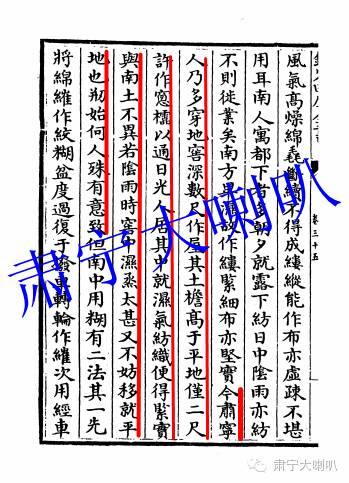 卷三十五
風氣髙燥綿毳斷續不得成縷縱能作布亦虛疎不堪
用耳南人寓都下者多朝夕就露下紡日中陰雨亦紡
不則徙業矣南方卑濕故作縷緊細布亦堅實今肅寧
人乃多穿地窖深數尺作屋其上檐髙于平地僅二尺
許作窻櫺以通日光人居其中就濕氣紡織便得緊實
與南土不異若陰雨時窖中濕蒸太甚又不妨移就平
地也刱始何人殊有意致但南中用糊有二法其一先
將綿維作絞糊盆度過復于撥車轉輪作維次用經車
肃宁大喇叭
肃宁大喇叭